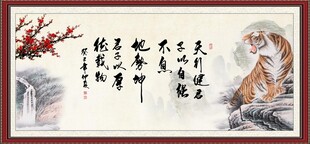 天行健君
子以自強
不息
地勢坤
君子以厚
德載物